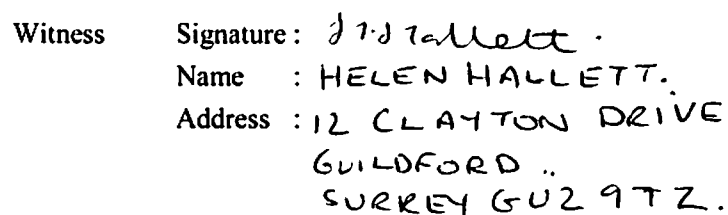 Witness Signature :
Name : HELEN HALLETT.
Address : 12 CLAYTON DRIVE
GUILDFORD ..
SURREY GU2 9TZ.